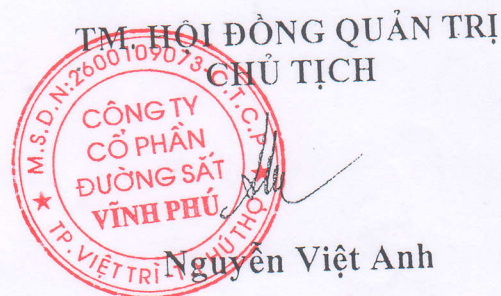 TM. HỘI ĐỒNG QUẢN TRỊ
CHỦ TỊCH
M.S.D.N:2600109073-C.T.C.P
CÔNG TY
CỔ PHẦN
ĐƯỜNG SẮT
VĨNH PHÚ
TP. VIỆT TRÌ - T. PHÚ THỌ
Nguyễn Việt Anh